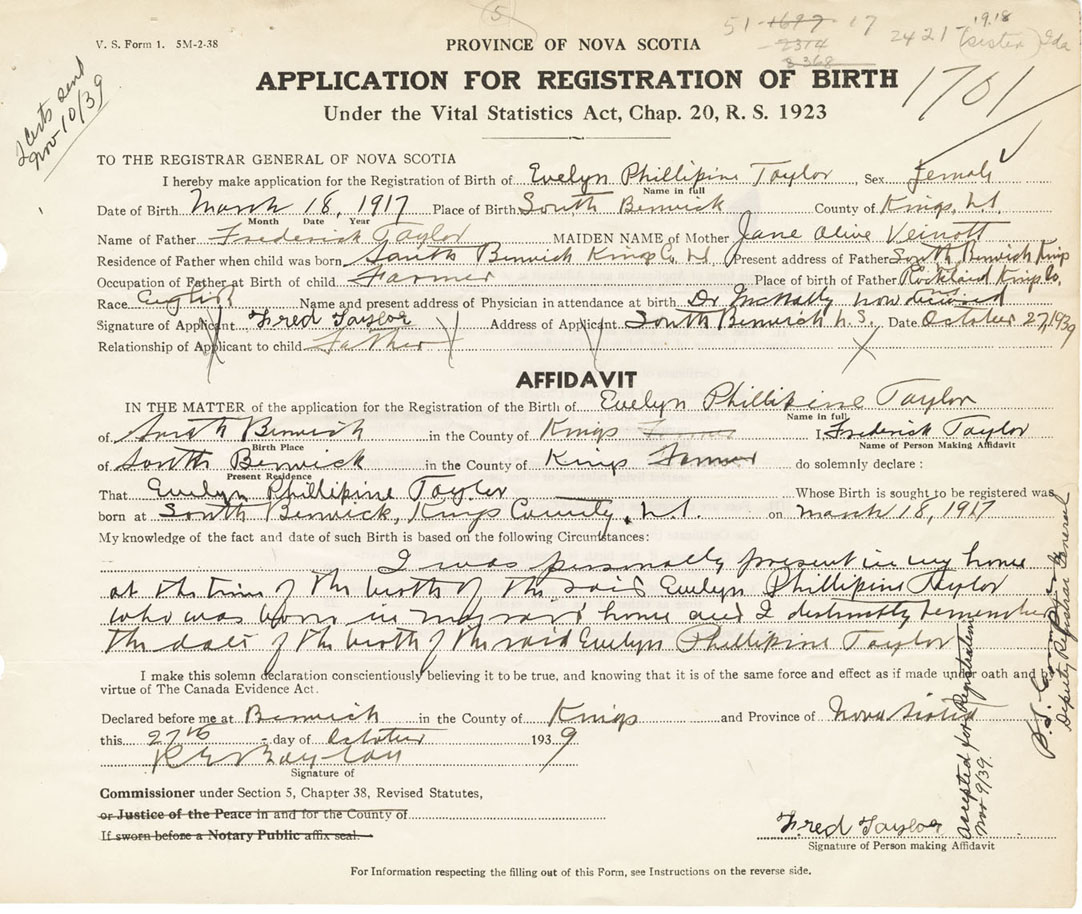 5
51 1677 17
2374
3368
2421 - 1918 (sister) Ida
V. S. Form 1. 5M-2-38
PROVINCE OF NOVA SCOTIA
APPLICATION FOR REGISTRATION OF BIRTH
1701
Under the Vital Statistics Act, Chap. 20, R. S. 1923
2 Certs send
Nov. 10/39
TO THE REGISTRAR GENERAL OF NOVA SCOTIA
I hereby make application for the Registration of Birth of Evelyn Phillipine Taylor, Sex Female
Name in full
Date of Birth March 18, 1917 Place of Birth South Berwick County of Kings, N.S.
Month Date Year
Name of Father Frederick Taylor MAIDEN NAME of Mother Jane Olive Veinott
Residence of Father when child was born South Berwick Kings Co. N.S. Present address of Father South Berwick Kings
Occupation of Father at Birth of child Farmer Place of birth of Father Rockland Kings Co.
Race English Name and present address of Physician in attendance at birth Dr McNally now deceased
Signature of Applicant Fred Taylor Address of Applicant South Berwick N.S. Date October 27, 1939
Relationship of Applicant to child Father
AFFIDAVIT
IN THE MATTER of the application for the Registration of the Birth of Evelyn Phillipine Taylor
Name in full
of South Berwick in the County of Kings Farmer I, Frederick Taylor
Birth Place Name of Person Making Affidavit
of South Berwick in the County of Kings Farmer do solemnly declare :
Present Residence
That Evelyn Phillipine Taylor Whose Birth is sought to be registered was
born at South Berwick, Kings County, N.S. on March 18, 1917
My knowledge of the fact and date of such Birth is based on the following Circumstances:
I was personally present in my home
at the time of the birth of the said Evelyn Phillipine Taylor
who was born in my said home and I distinctly remember
the date of the birth of the said Evelyn Phillipine Taylor
I make this solemn declaration conscientiously believing it to be true, and knowing that it is of the same force and effect as if made under oath and by
virtue of The Canada Evidence Act.
Declared before me at Berwick in the County of Kings and Province of Nova Scotia
this 27th day of October 1939
Signature of
Commissioner under Section 5, Chapter 38, Revised Statutes,
or Justice of the Peace in and for the County of
If sworn before a Notary Public affix seal.
Fred Taylor
Signature of Person making Affidavit
accepted for Registration
Nov 9/39.
Deputy Registrar General
For Information respecting the filling out of this Form, see Instructions on the reverse side.